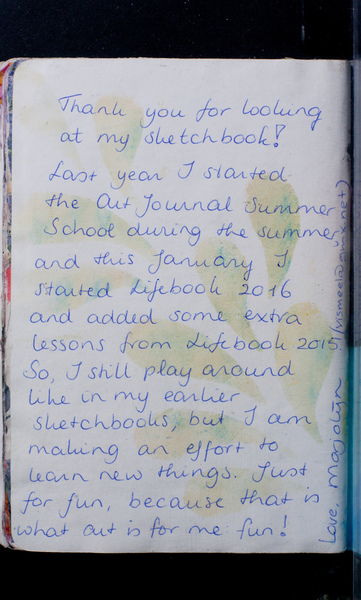 Thank you for looking
at my sketchbook!
Last year I started
the Art Journal Summer
School during the summer,
and this January I
started Lifebook 2016
and added some extra
lessons from Lifebook 2015.
So, I still play around
like in my earlier
sketchbooks, but I am
making an effort to
learn new things. Just
for fun, because that is
what art is for me fun!
Love, Marjolijn